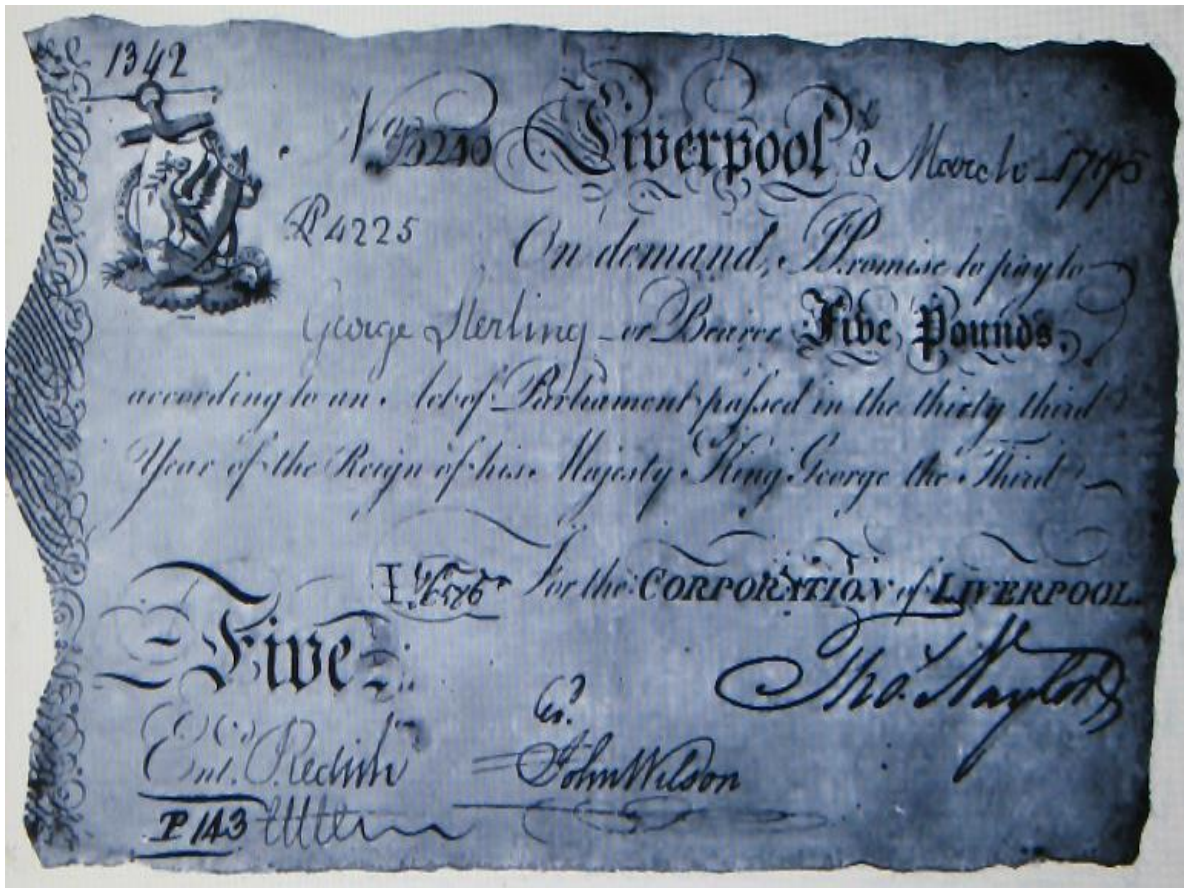 1342
Liverpool 8 March
P4225
On demand, I Promise to pay to
George Sterling or Bearer Five Pounds,
according to an Act of Parliament passed in the thirty third
Year of the Reign of his Majesty King George the Third
For the CORPORATION of LIVERPOOL.
Five
Tho.s Naylor
Ent.
John Wilson
P 143